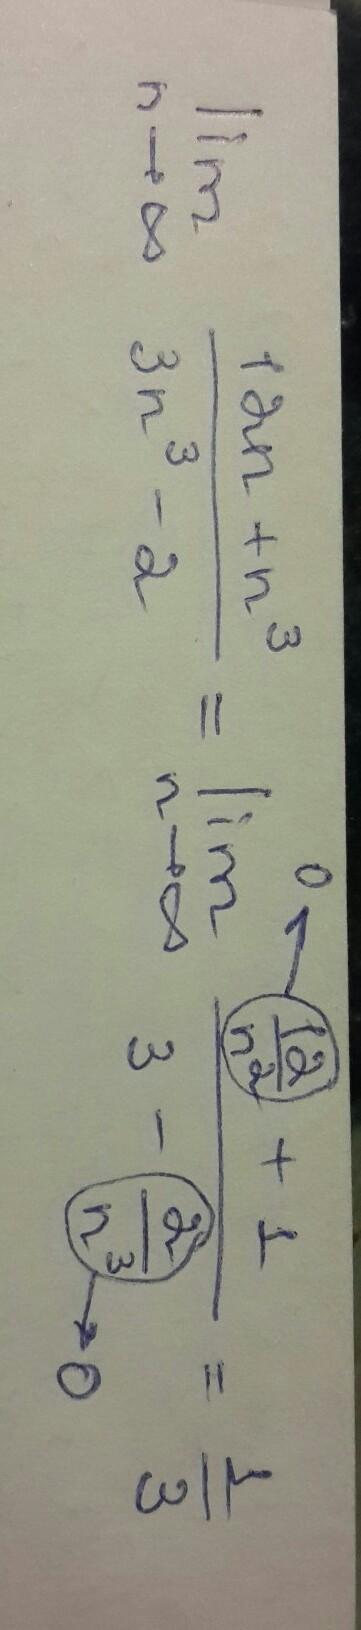 lim n→∞ (12n + n³)/(3n³ - 2) = lim n→∞ (12/n² + 1)/(3 - 2/n³) = 1/3
0
0